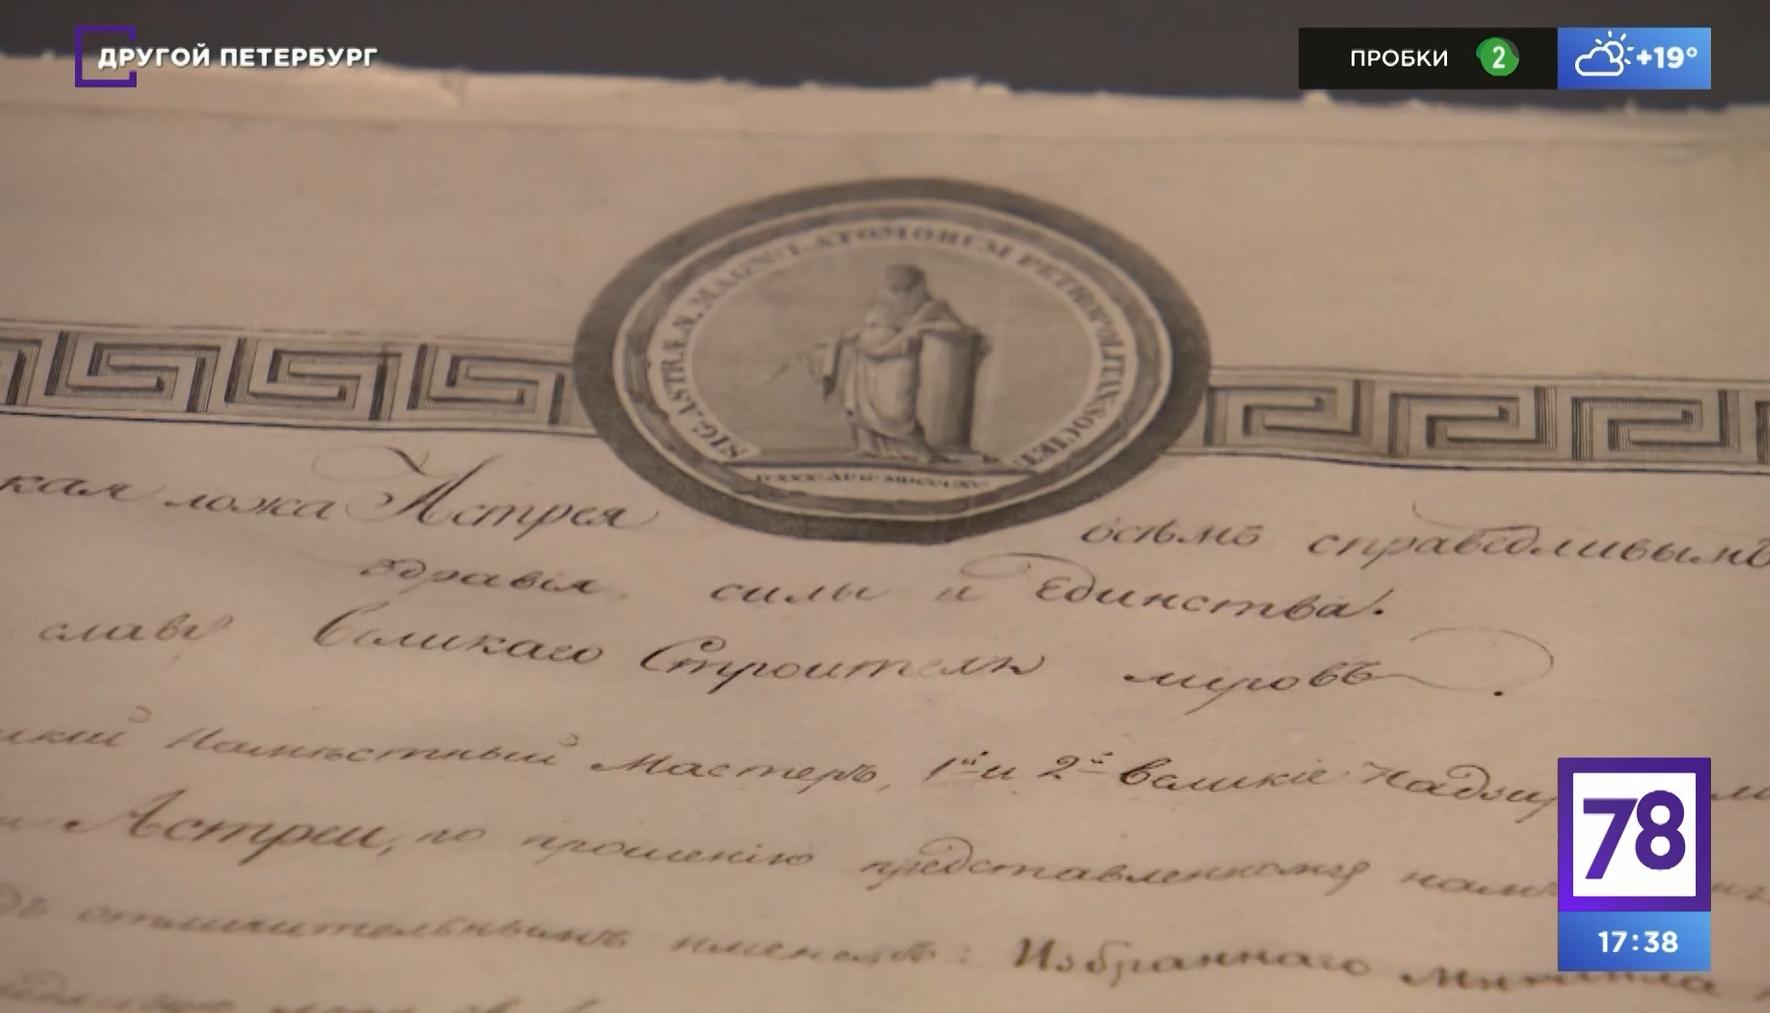 ДРУГОЙ ПЕТЕРБУРГ
ПРОБКИ 2 +19°
SIG. ASTRÆÆ MAGN: LATOMORUM PETROPOLITAN: SOCIET:
кая ложа Астрея всѣмъ справедливымъ
здравія, силы и Единства.
славу Великаго Строителя міровъ.
Намѣстный Мастеръ, 1й и 2й великіе
Астреи, по прошенію представленному
отличительнымъ именемъ: Избраннаго Михаила
78
17:38